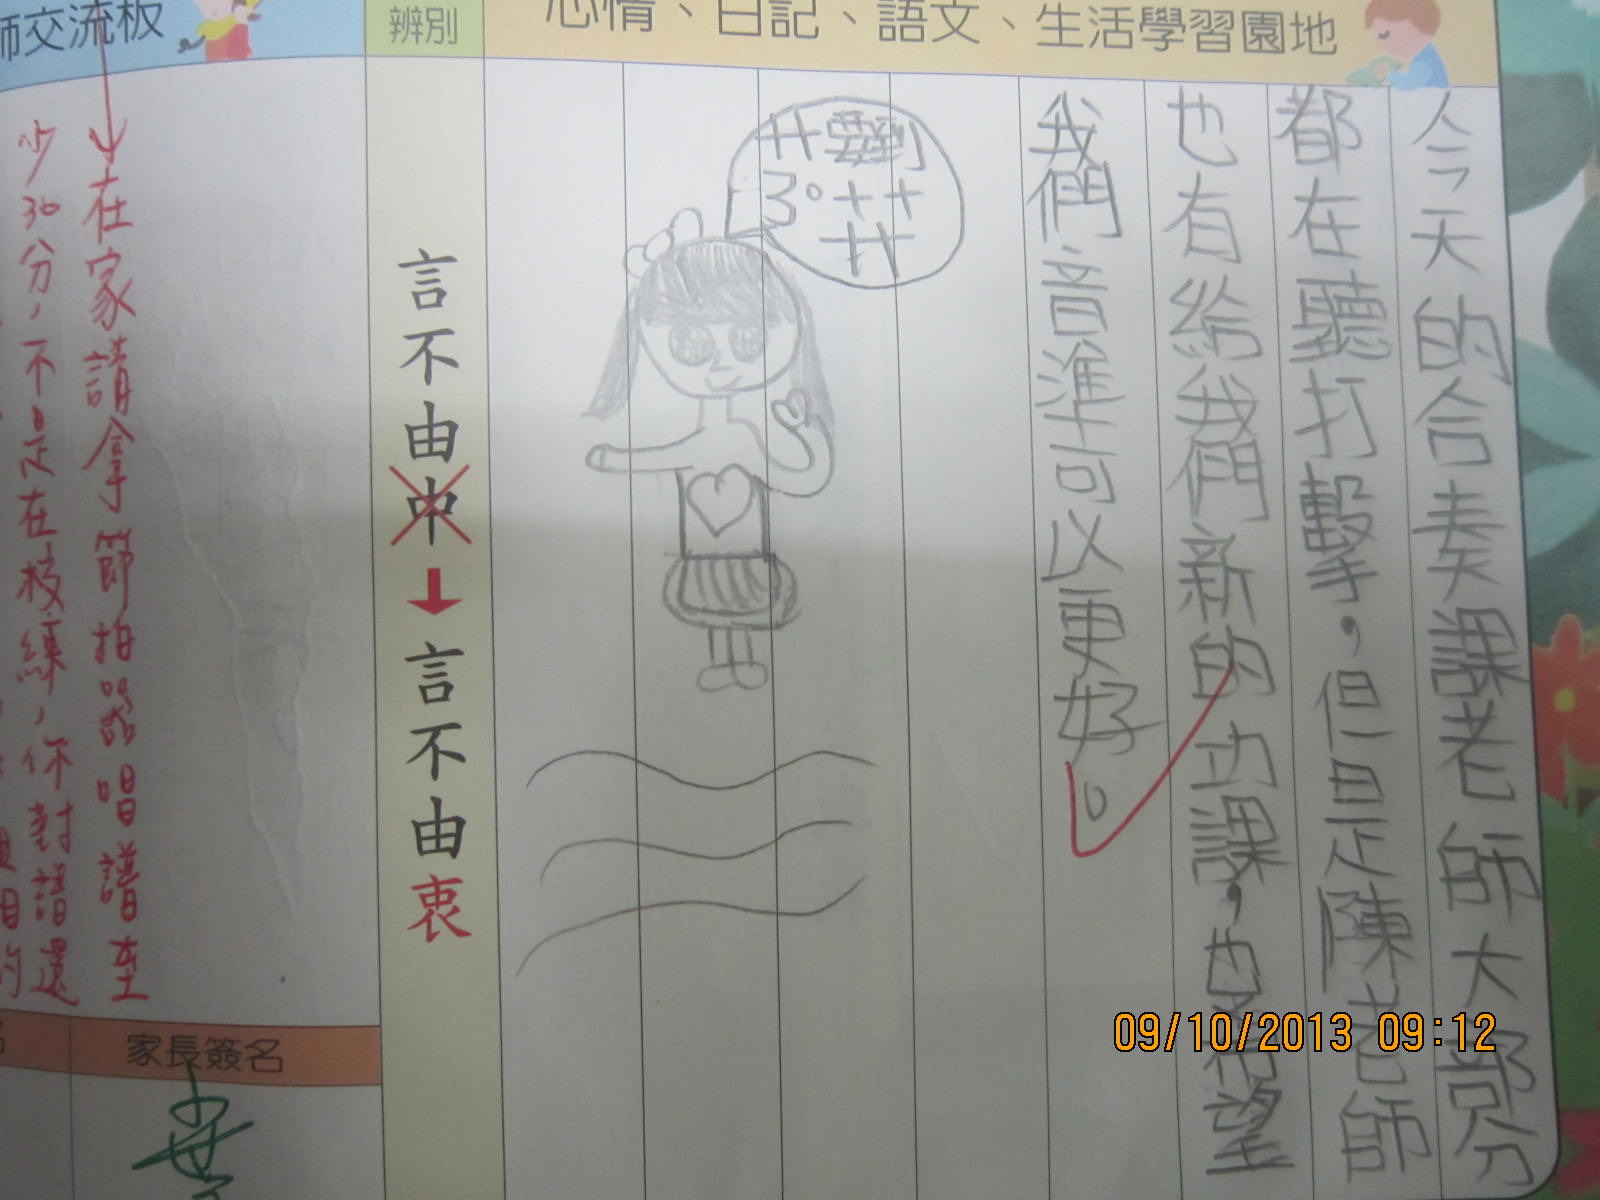 心情、日記、語文、生活學習園地
今天的合奏課老師大部分
都在聽打擊，但是陳老師
也有給我們新的功課，也希望
我們音準可以更好。
辨別
言不由中
言不由衷
師交流板
在家請拿節拍器唱譜至
少30分，不是在校練，你對譜還
家長簽名
09/10/2013 09:12